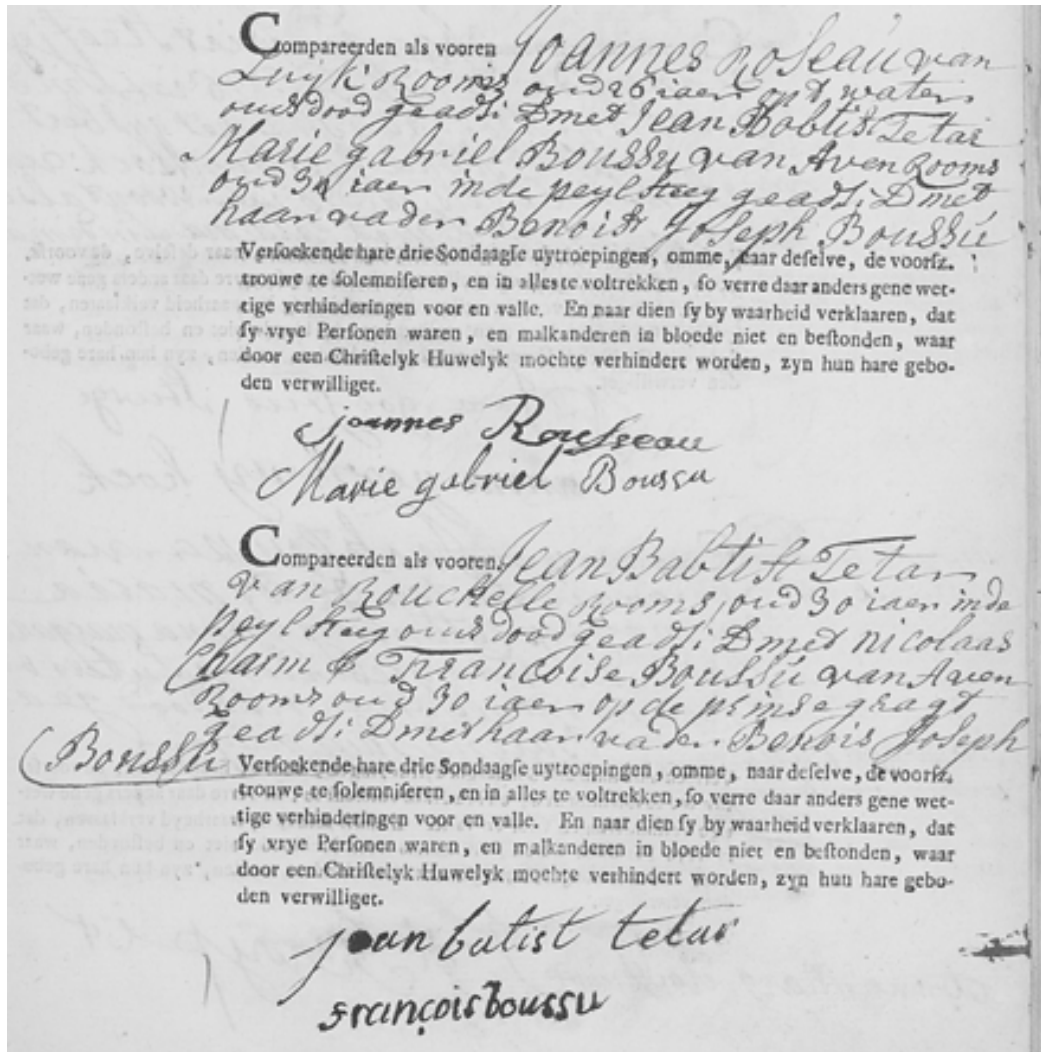 Compareerden als vooren Joannes Roseau van
Luyk Rooms oud 26 iaer opt water
ouds dood geadsi Dmet Jean Babtist Tetar
Marie gabriel Boussu van Aven Rooms
oud 34 iaer inde peylsteeg geadsi Dmet
haar vader Benoist Joseph Boussu
Versoekende hare drie Sondaagse uytroepingen, omme, naar deselve, de voorsz.
trouwe te solemniseren, en in alles te voltrekken, so verre daar anders gene wet-
tige verhinderingen voor en valle. En naar dien sy by waarheid verklaaren, dat
sy vrye Personen waren, en malkanderen in bloede niet en bestonden, waar
door een Christelyk Huwelyk mochte verhindert worden, zyn hun hare gebo-
den verwilliget.
joannes Rousseau
Marie gabriel Boussu
Compareerden als vooren. Jean Babtist Tetar
van Rouchelle Rooms oud 30 iaer inde
peylsteeg ouds dood geadsi Dmet nicolaas
Francoise Boussu van Aven
Rooms oud 30 iaer op de prinsegragt
geadsi Dmet haar vader Benois Joseph
Boussu Versoekende hare drie Sondaagse uytroepingen, omme, naar deselve, de voorsz.
trouwe te solemniseren, en in alles te voltrekken, so verre daar anders gene wet-
tige verhinderingen voor en valle. En naar dien sy by waarheid verklaaren, dat
sy vrye Personen waren, en malkanderen in bloede niet en bestonden, waar
door een Christelyk Huwelyk mochte verhindert worden, zyn hun hare gebo-
den verwilliget.
jean batist tetar
françois boussu